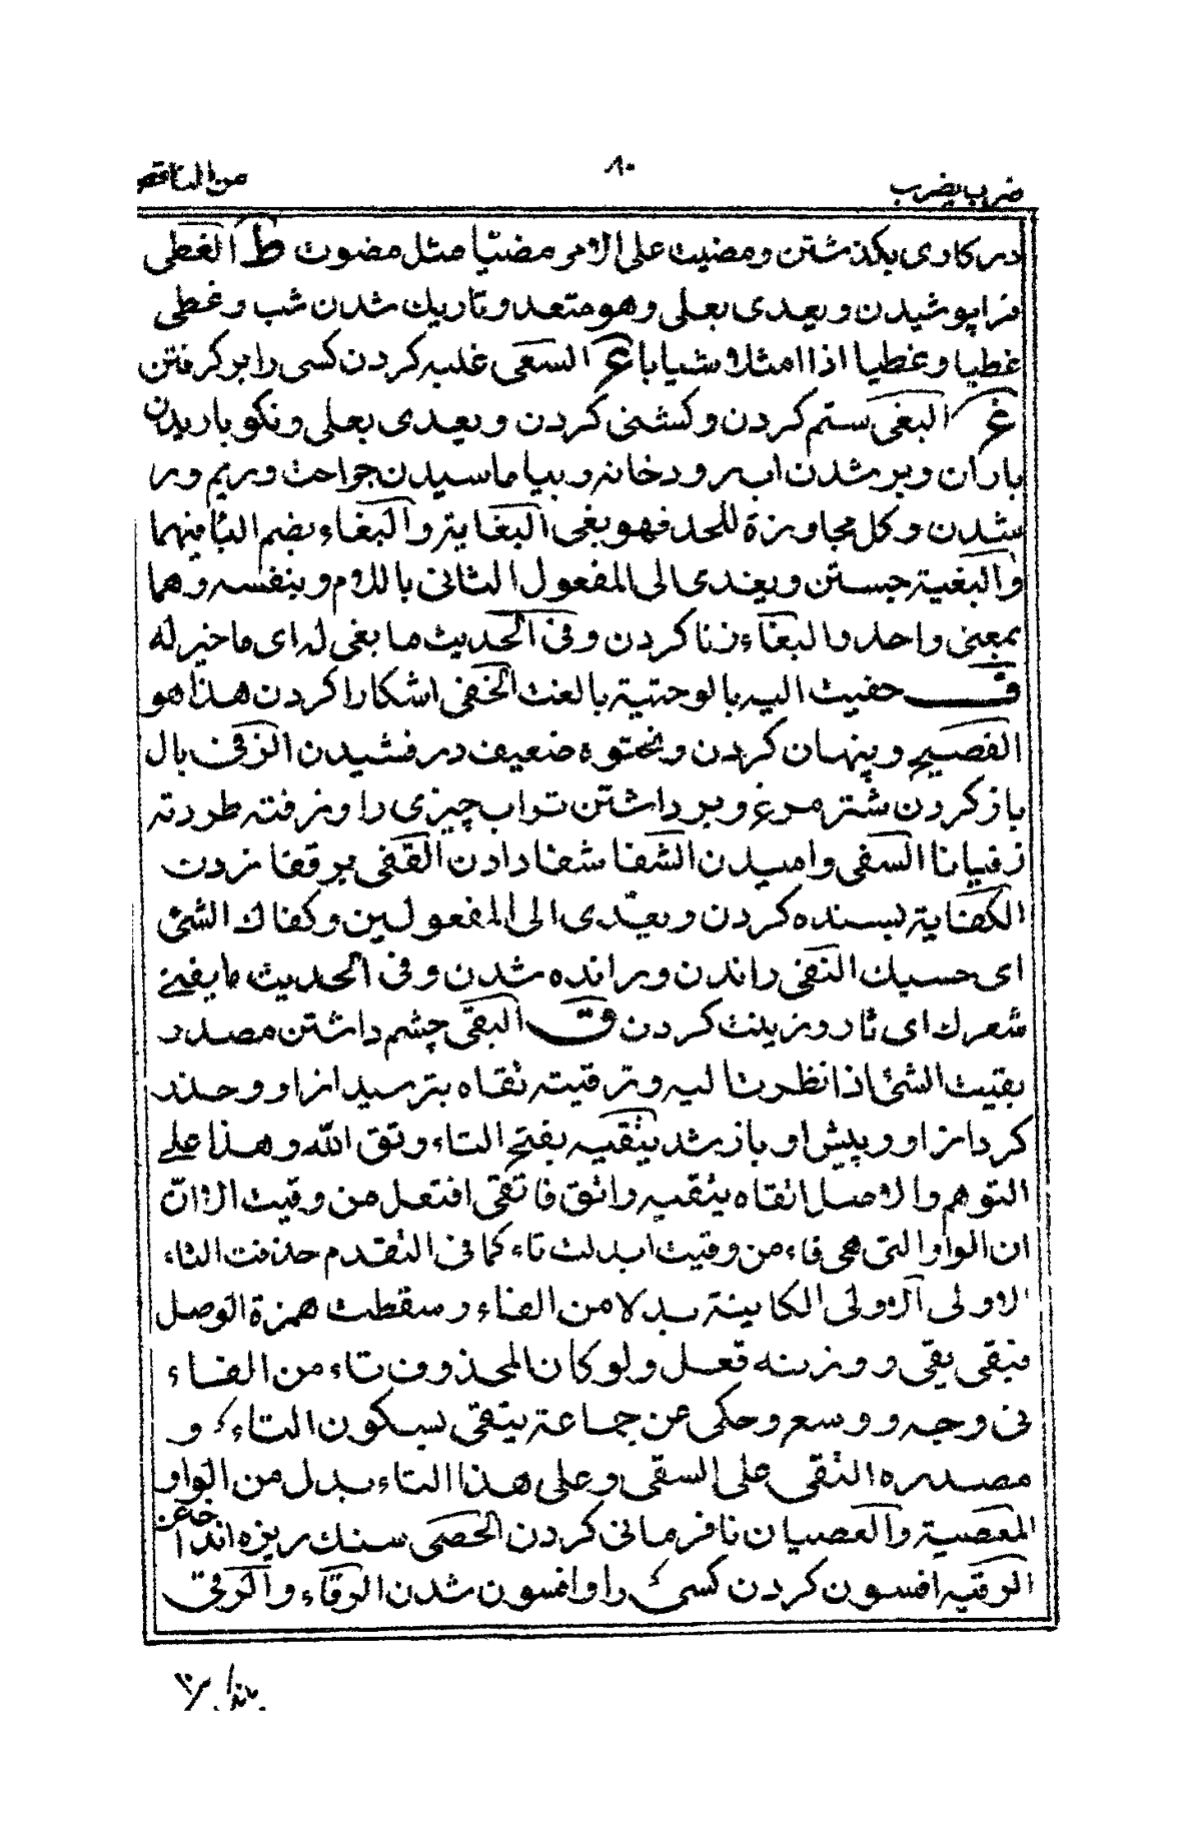 ضرب یضرب ۸۰ من الناقص
در کاری بکذشتن ومضیت علی الامر مضیّا مثل مضوت ط الغطی
فرا پوشیدن ویعدی بعلی وهو متعد وتاریك شدن شب وغطی
غطیا وغطیا اذا امتلا شبابا ع السعی غلبه کردن کسی را بر کرفتن
غ البغی ستم کردن وکشنی کردن ویعدی بعلی ونکو باریدن
باران وپر شدن اب رودخانه وبیاماسیدن جراحت وریم ور
شدن وکل مجاوزة للحد فهو بغی البغایة والبغاء بضم البا فیهما
والبغیة جستن ویعدی الی المفعول الثانی باللام وبنفسه وهما
بمعنی واحد والبغاء زنا کردن وفی الحدیث ما بغی له ای ما خیر له
ف حفیت الیه بالوصیة بالغت الخفی اشکارا کردن هذا هو
الفصیح وپنهان کردن ونحتوه ضعیف درفشیدن الزفی بال
باز کردن شتر مرغ وبرداشتن تراب چیزی را وزفته طردته
زفیانا السفی وامیدن الشفا شفا دادن القفی بر قفا زدن
الکفایة بسنده کردن ویعدی الی المفعولین وکفاك الشئ
ای حسبك النفی راندن ورانده شدن وفی الحدیث ما یفنے
شعرك ای ثار وزینت کردن ق البقی چشم داشتن مصدر
بقیت الشئ اذا نظرت الیه وترقبته تقاه بترسید از او وحذر
کرد از او وپیش او باز شد یتقیه بفتح التاء وتق الله وهذا علے
التوهم والاصل اتقاه یتقیه واتق فاتقی افتعل من وقیت الا انّ
ان الواو التی هی فاء من وقیت ابدلت تاء کما فی التقدم حذفت التاء
الاولی الاولی الکاینة بدلا من الفاء وسقطت همزة الوصل
فبقی یقی ووزنه فعل ولو کان المحذوف تاء من الفاء
فی وجه ووسع وحکی عن جماعة یتقی بسکون التاء و
مصدره التقی علی السقی وعلی هذا التاء بدل من الواو
المعصیة والعصیان نافرمانی کردن الحصی سنك ریزه انداختن
الرقیه افسون کردن کسئ را وافسون شدن الوقاء والوقی